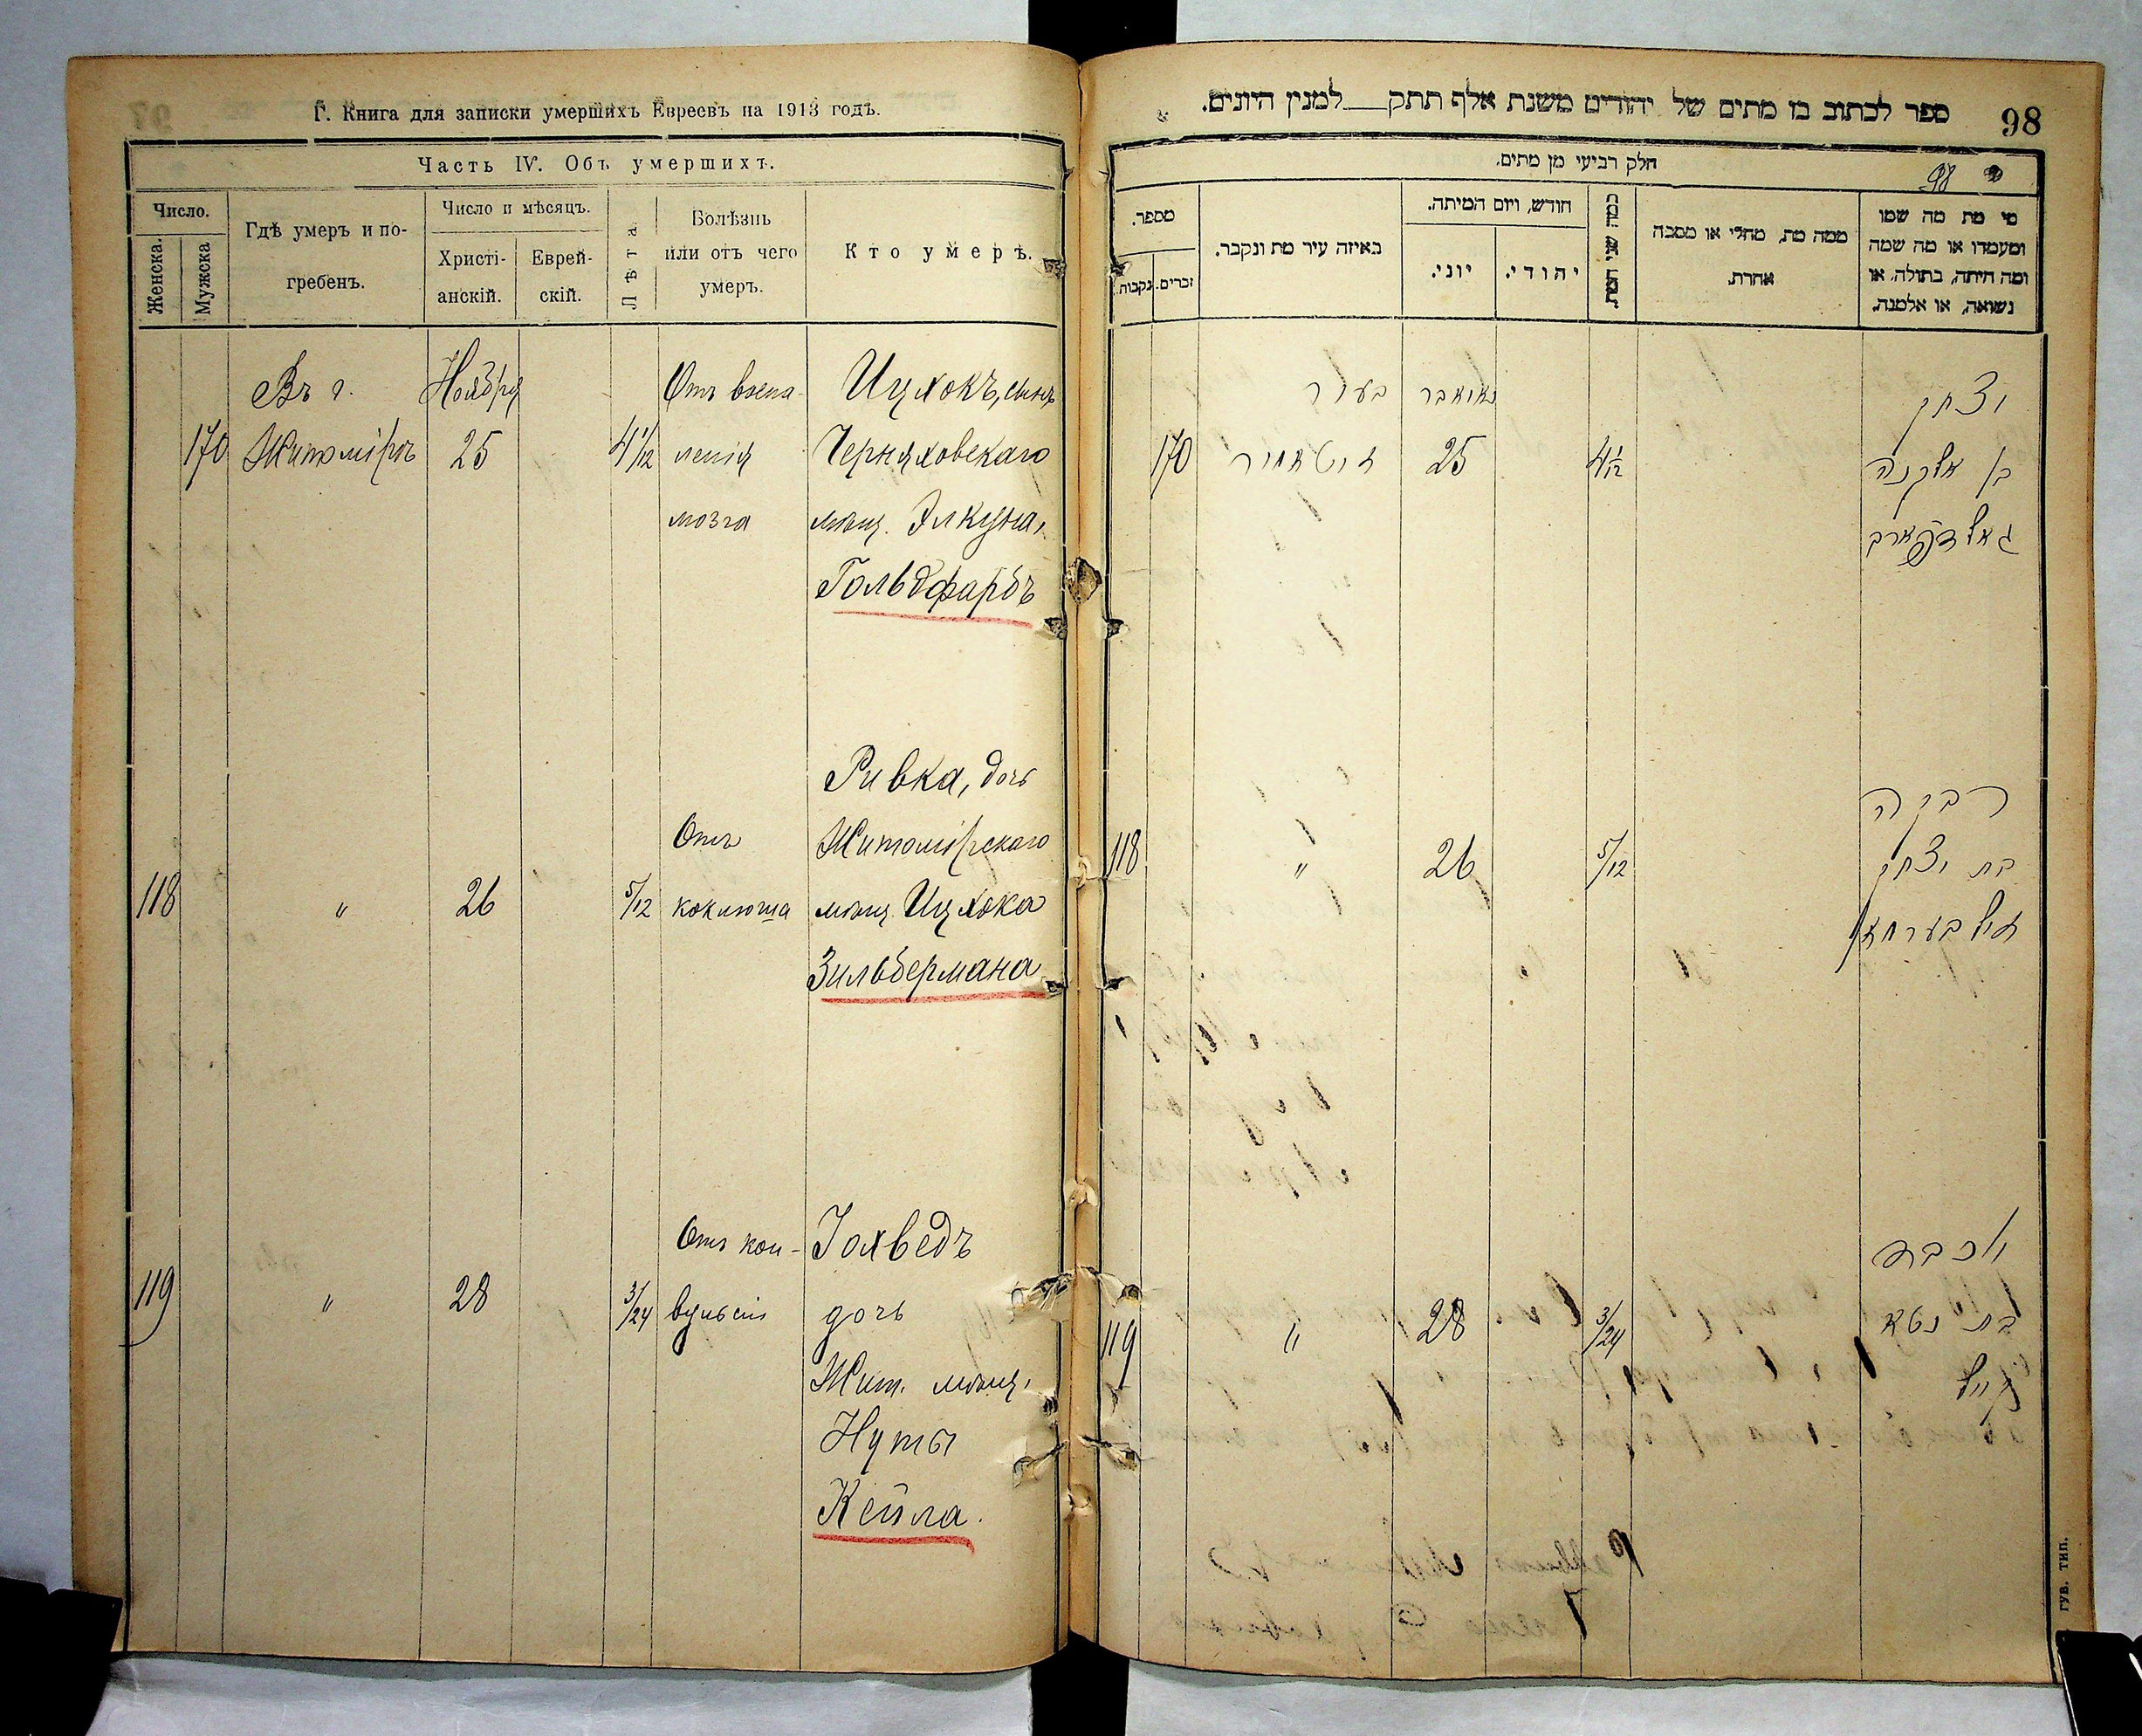 Г. Книга для записки умершихъ Евреевъ на 1913 годъ.
Часть IV. Объ умершихъ.
Число.
Женска.
Мужска
Гдѣ умеръ и по-
гребенъ.
Число и мѣсяцъ.
Христі-
анскій.
Еврей-
скій.
Лѣта
Болѣзнь
или отъ чего
умеръ.
Кто умеръ.
Въ г. Ноября Отъ воспа- Ицхокъ, сынъ
170 Житомірѣ 25 4 1/12 ленія Черняховскаго
мозга мѣщ. Элкуна,
Гольдфарбъ
Ривка, дочь
Отъ Житомірскаго
118 " 26 5/12 коклюша мѣщ. Ицхока
Зильбермана
Отъ кон- Іохведъ
119 " 28 3/24 вульсіи дочь
Жит. мѣщ.
Нуты
Кейла.
ספר לכתוב בו מתים של יהודים משנת אלף תתק למנין היונים.
98
חלק רביעי מן מתים.
98
מי מת מה שמו
ומעמדו או מה שמה
ומה היתה, בתולה, או
נשואה, או אלמנה.
ממה מת, מחלי או מסבה
אחרת.
כמה שני המת.
חודש, ויום המיתה.
יהודי.
יוני.
באיזה עיר מת ונקבר.
מספר.
זכרים.
נקבות.
יצחק נאיאבר בעיר
בן אלקנה 4 1/12 25 זיטאמיר 170
גאלדפארב
רבקה
בת יצחק 5/12 26 " 118
זילבערמאן
יוכבד
בת נטא 3/24 28 " 119
קייל
губ. тип.